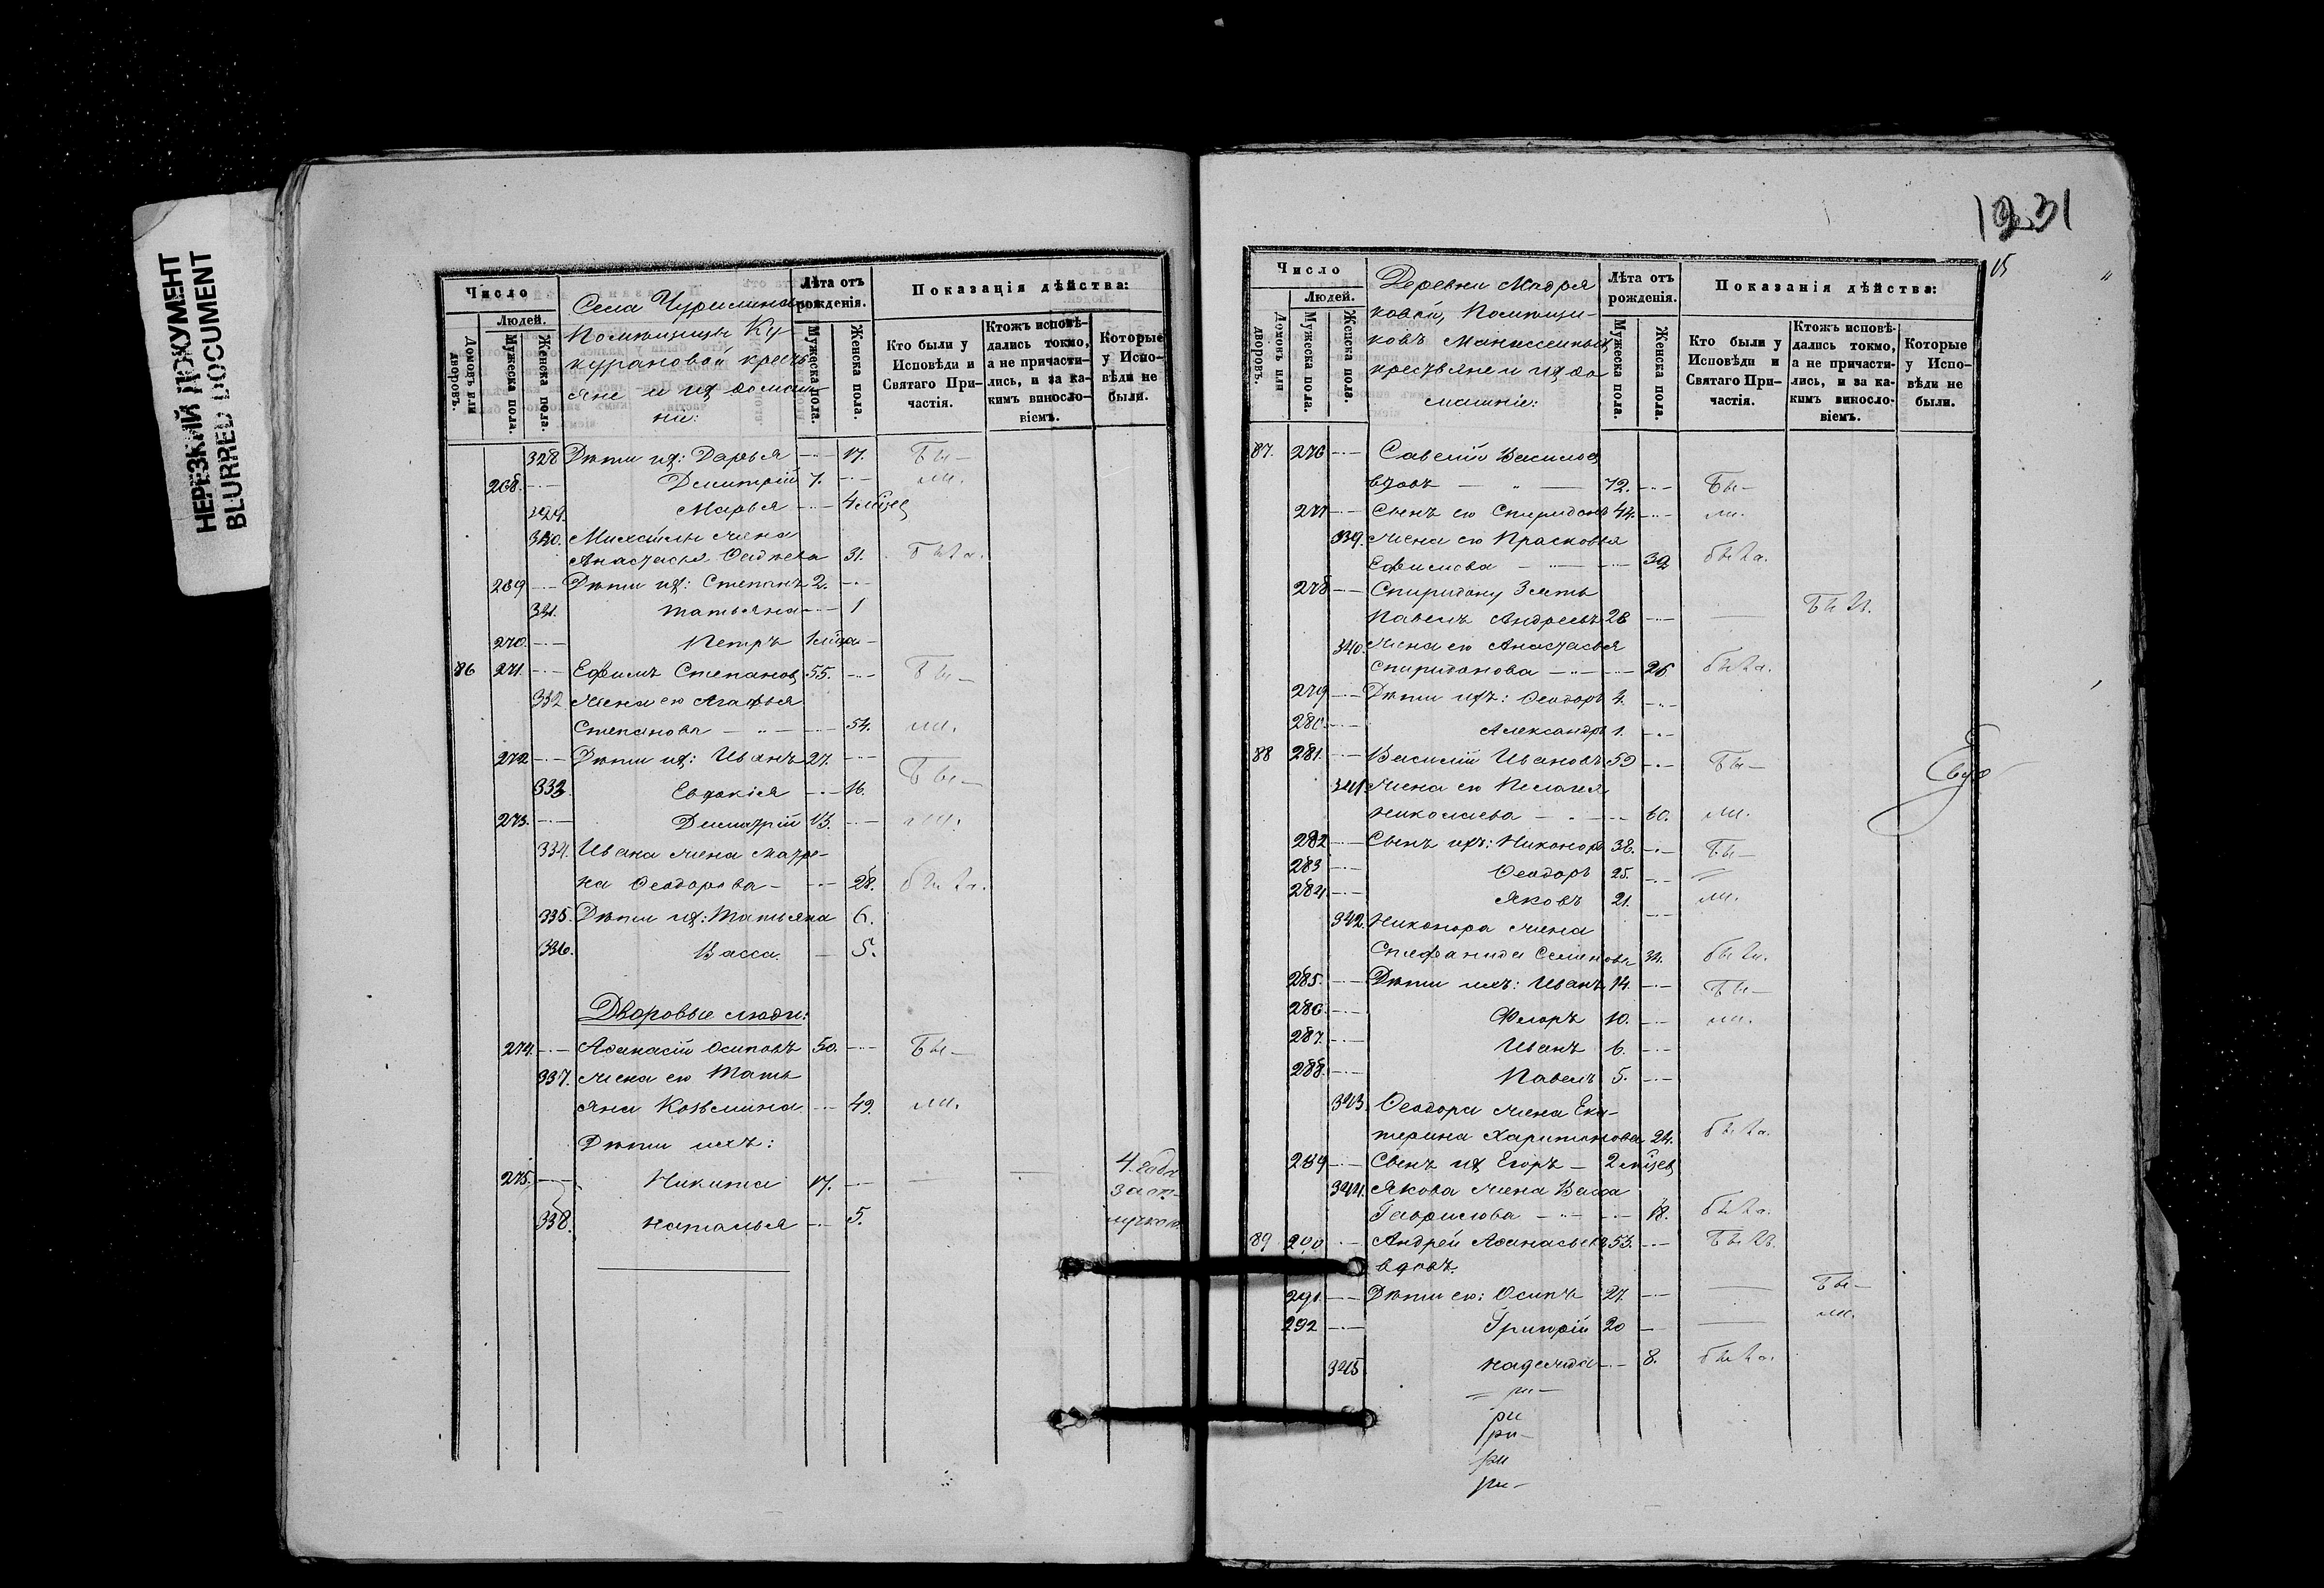 НЕРЕЗКИЙ ДОКУМЕНТ
BLURRED DOCUMENT
Число
Людей.
Домовъ или дворовъ.
Мужеска пола.
Женска пола.
Села Чурилина
Помѣщицы Ку-
курановой кресть
яне и ихъ домаш-
ніи:
Лѣта отъ рожденія.
Мужеска пола.
Женска пола.
Показація дѣйства:
Кто были у Исповѣди и Святаго При-частія.
Ктожъ исповѣ-дались токмо, а не причасти-лись, и за ка-кимъ винослο-віемъ.
Которые у Испо-вѣди не были.
328 Дѣти ихъ: Дарья 17. Бы-
268. Димитрій 7. ли.
329. Марья 4 мѣсец
330. Михаилы жена
Анастасья Фадѣева 31. была.
269 Дѣти ихъ: Степанъ 2.
331. Татьяна 1
270. Петръ 1 мѣца
86 271. Ефимъ Степановъ 55. Бы-
332 Жена его Агафья
Степанова 54. ли.
272 Дѣти ихъ: Иванъ 27.
333. Евдокія 16. Бы-
273. Димитрій 13. ли.
334. Ивана жена Матре-
на Ѳеодорова 28. была.
335. Дѣти ихъ: Татьяна 6.
336. Васса 5.
Дворовые люди:
274. Аѳанасій Осиповъ 50. Бы-
337. Жена его Тать
яна Козьмина 49. ли.
Дѣти ихъ:
275. Никита 17. 4 года
за от-
лучкою
338. Наталья 5.
1231
15
Число
Людей.
Домовъ или дворовъ.
Мужеска пола.
Женска пола.
Деревни Мадря
ковой, Помѣщи-
ковъ Манасеиныхъ
крестьяне и ихъ до
машніе:
Лѣта отъ рожденія.
Мужеска пола.
Женска пола.
Показанія дѣйства:
Кто были у Исповѣди и Святаго При-частія.
Ктожъ исповѣ-дались токмо, а не причасти-лись, и за ка-кимъ винослο-віемъ.
Которые у Испо-вѣди не были.
87. 276 Савелій Васильев
вдовъ 72. Бы-
277 Сынъ его Спиридонъ 44. ли.
339. Жена его Прасковья
Ефимова 39 была.
278 Спиридону Зять
Павелъ Андреевъ 28 Былъ.
340. Жена его Анастасья
Спиридонова 26 была.
279 Дѣти ихъ: Ѳеодоръ 4.
280. Александръ 1.
88 281. Василій Ивановъ 59 Бы-
341. Жена его Пелагея
Николаева 60. ли.
282 Сынъ ихъ: Никоноръ 38. Бы-
283 Ѳеодоръ 25.
284. Яковъ 21. ли.
342. Никонора жена
Стефанида Семенова 34. была.
285. Дѣти ихъ: Иванъ 14. Бы-
286. Флоръ 10. ли.
287. Иванъ 6.
288. Павелъ 5.
343. Ѳеодора жена Ека-
терина Харитонова 24. была.
289 Сынъ ихъ Егоръ 2 мѣсец
344. Якова жена Васса
Гаврилова 18. была.
89 290 Андрей Аѳанасьевъ 53. Былъ.
вдовъ.
291. Дѣти его: Осипъ 27. Бы-
292 Григорій 20 ли.
345 Надежда 8. была.
ри-
ри
ри-
ри
ри-